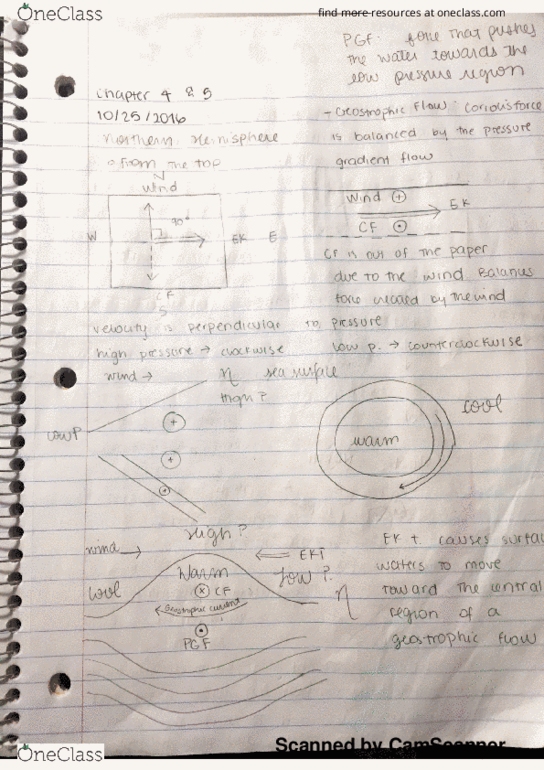 OneClass
find more resources at oneclass.com
PGF: force that pushes
the water towards the
low pressure region
Chapter 4 & 5
10/25/2016
Northern Hemisphere
from the top
- Geostrophic Flow: Coriolis force
is balanced by the pressure
gradient flow
N
Wind
90°
W
EK E
CF
S
Wind
EK
CF
CF is out of the paper
due to the wind Balances
force created by the wind
velocity is perpendicular to pressure
high pressure → clockwise
low p. → counterclockwise
wind →
η sea surface
High P
Low P
cool
warm
High P
wind →
← EKT
Warm
Low P
cool
CF
Geostrophic current
η
PGF
EK t. causes surfa
waters to move
toward the central
region of a
geostrophic flow
OneClass
Scanned by CamScanner